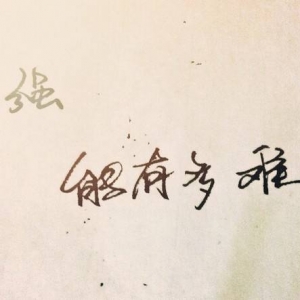 强
能有多难